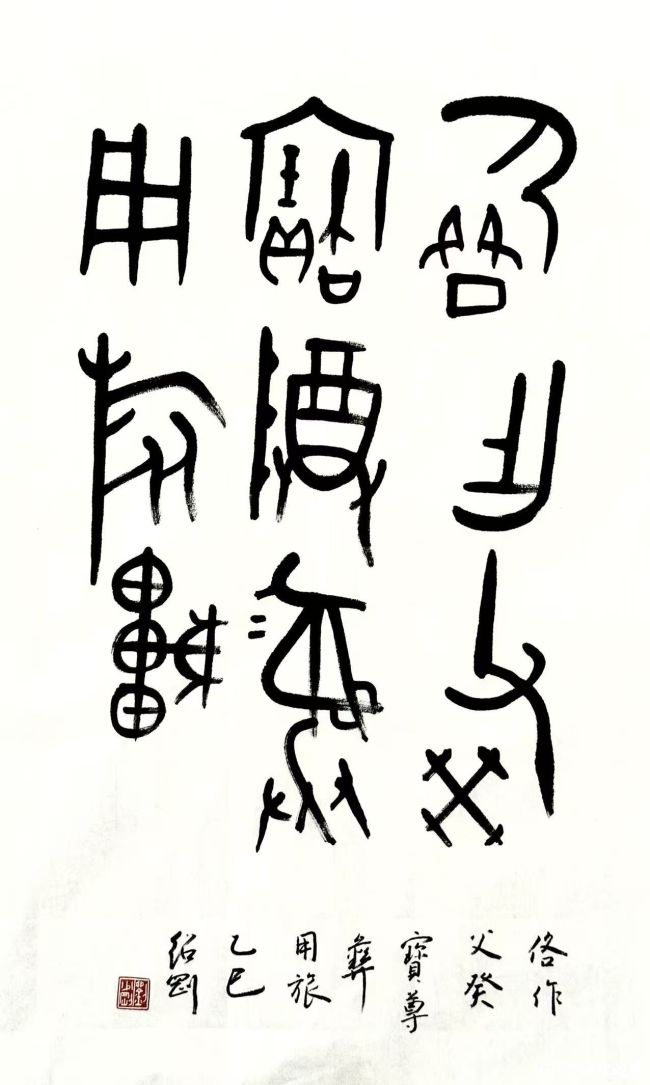 佫作父癸
寶尊彝
用旅車
佫作
父癸
寶尊
彝
用旅
乙巳
紹剛